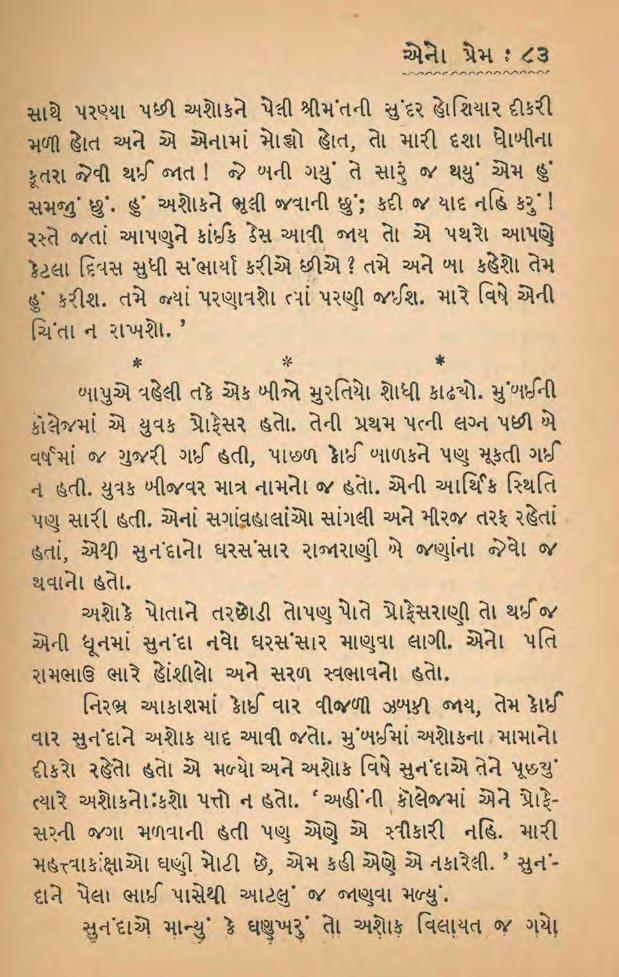 એનો પ્રેમ : ૮૩
સાથે પરણ્યા પછી અશોકને પેલી શ્રીમંતની સુંદર હોશિયાર દીકરી
મળી હોત અને એ એનામાં મોહ્યો હોત, તો મારી દશા ધોબીના
કૂતરા જેવી થઈ જાત ! જે બની ગયું તે સારું જ થયું એમ હું
સમજું છું. હું અશોકને ભૂલી જવાની છું; કદી જ યાદ નહિ કરું !
રસ્તે જતાં આપણને કાંઈક ઠેસ આવી જાય તો એ પથરો આપણે
કેટલા દિવસ સુધી સંભાર્યા કરીએ છીએ ? તમે અને બા કહેશો તેમ
હું કરીશ. તમે જ્યાં પરણાવશો ત્યાં પરણી જઈશ. મારે વિષે એની
ચિંતા ન રાખશો. ’
* * *
બાપુએ વહેલી તકે એક બીજો મુરતિયો શોધી કાઢ્યો. મુંબઈની
કૉલેજમાં એ યુવક પ્રોફેસર હતો. તેની પ્રથમ પત્ની લગ્ન પછી બે
વર્ષમાં જ ગુજરી ગઈ હતી, પાછળ કોઈ બાળકને પણ મૂકતી ગઈ
ન હતી. યુવક બીજવર માત્ર નામનો જ હતો. એની આર્થિક સ્થિતિ
પણ સારી હતી. એનાં સગાંવહાલાંઓ સાંગલી અને મીરજ તરફ રહેતાં
હતાં, એથી સુનંદાનો ઘરસંસાર રાજારાણી બે જણાંના જેવો જ
થવાનો હતો.
અશોકે પોતાને તરછોડી તોપણ પોતે પ્રોફેસરાણી તો થઈ જ
એની ધૂનમાં સુનંદા નવો ઘરસંસાર માણવા લાગી. એનો પતિ
રામભાઉ ભારે હોંશીલો અને સરળ સ્વભાવનો હતો.
નિરભ્ર આકાશમાં કોઈ વાર વીજળી ઝબકી જાય, તેમ કોઈ
વાર સુનંદાને અશોક યાદ આવી જતો. મુંબઈમાં અશોકના મામાનો
દીકરો રહેતો હતો એ મળ્યો અને અશોક વિષે સુનંદાએ તેને પૂછ્યું
ત્યારે અશોકનો કશો પત્તો ન હતો. ‘ અહીંની કૉલેજમાં એને પ્રોફે-
સરની જગા મળવાની હતી પણ એણે એ સ્વીકારી નહિ. મારી
મહત્ત્વાકાંક્ષાઓ ઘણી મોટી છે, એમ કહી એણે એ નકારેલી. ’ સુનં-
દાને પેલા ભાઈ પાસેથી આટલું જ જાણવા મળ્યું.
સુનંદાએ માન્યું કે ઘણુખરું તો અશોક વિલાયત જ ગયો